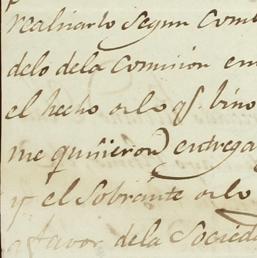 realizarlo segun Comi
delo dela Comision en
el hecho de lo qe. bino
me quisieron entrega
y el Sobrante de lo
a favor de la Socied